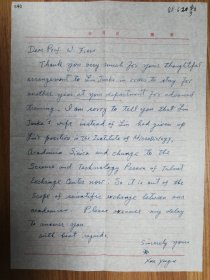 Dear Prof. W.
Thank you very much for your thoughtful
arrangement to Lin in order to stay for
another year at your department for advanced
training. I am sorry to tell you that Lin
wife instead of Lin had given up
Lin's position in the Institute of Microbiology,
Academia Sinica and change to the
Science and Technology Person of Talent
Exchange Center now. So it is out of the
scope of scientific exchange between our
academies. Please excuse my delay
to answer you
with best regards,
Sincerely yours